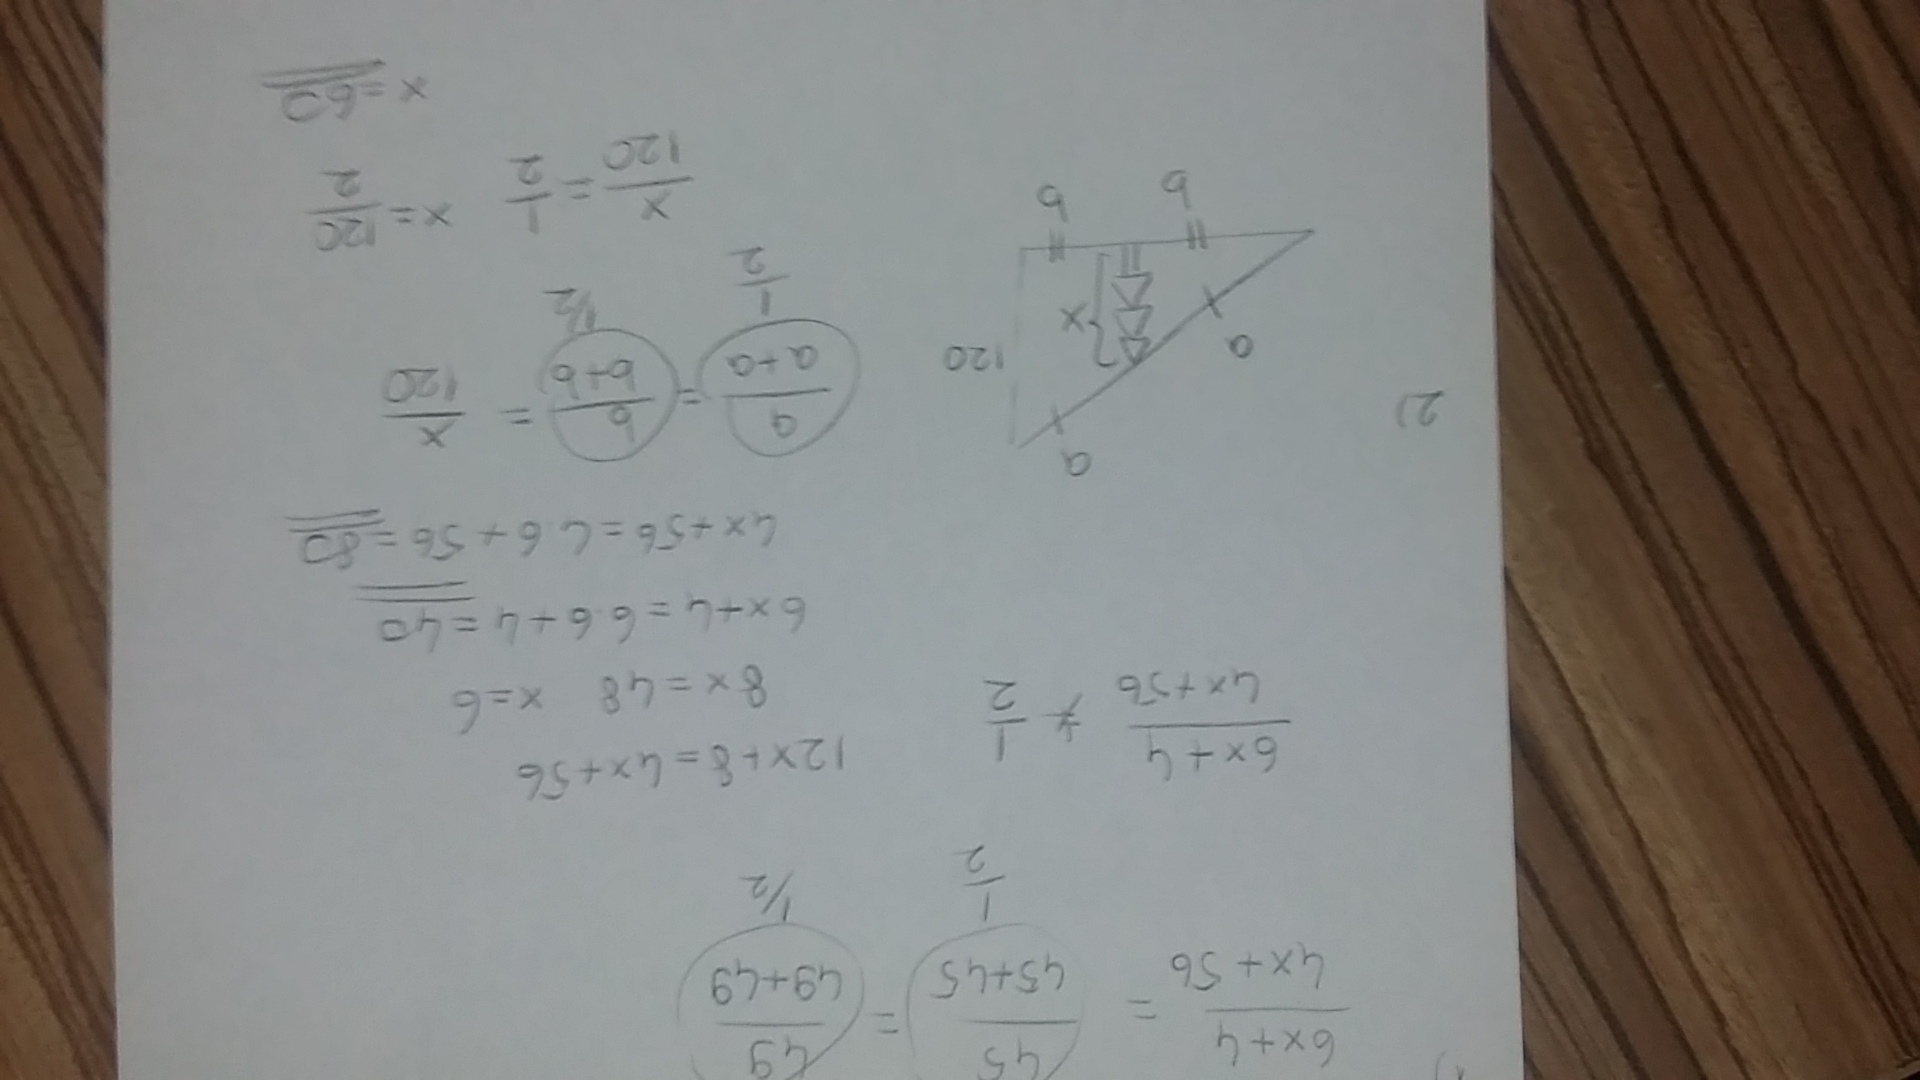 1)
6x+4/4x+56 = 45/45+45 = 49/49+49
1/2 1/2
6x+4/4x+56 = 1/2
12x+8=4x+56
8x=48 x=6
6x+4=6·6+4=40
4x+56=4·6+56=80
2)
a
a
120
x
b b
a/a+a = b/b+b = x/120
1/2 1/2
x/120 = 1/2 x=120/2
x=60